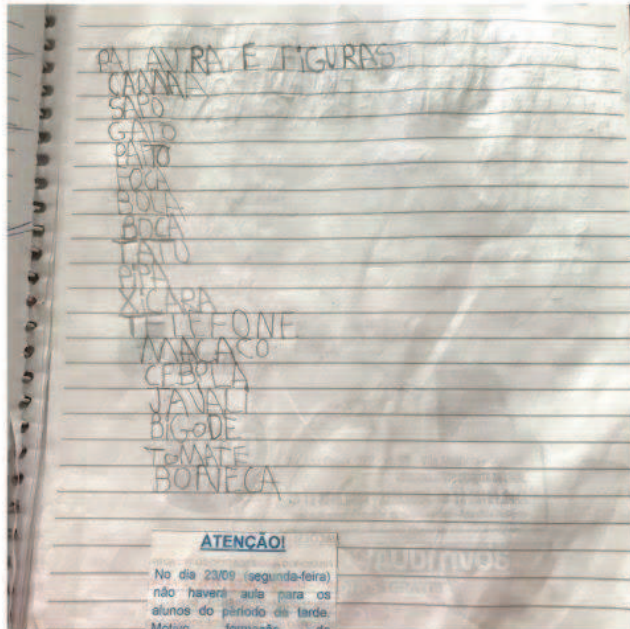 PALAVRA E FIGURAS
SAPO
GATO
PATO
FOCA
BOLA
BOCA
TATU
PIPA
XICARA
TELEFONE
MACACO
CEBOLA
BIGODE
TOMATE
BONECA
ATENÇÃO!
No dia 23/09 (segunda-feira)
não haverá aula para os
alunos do período da tarde.
Motivo formação de